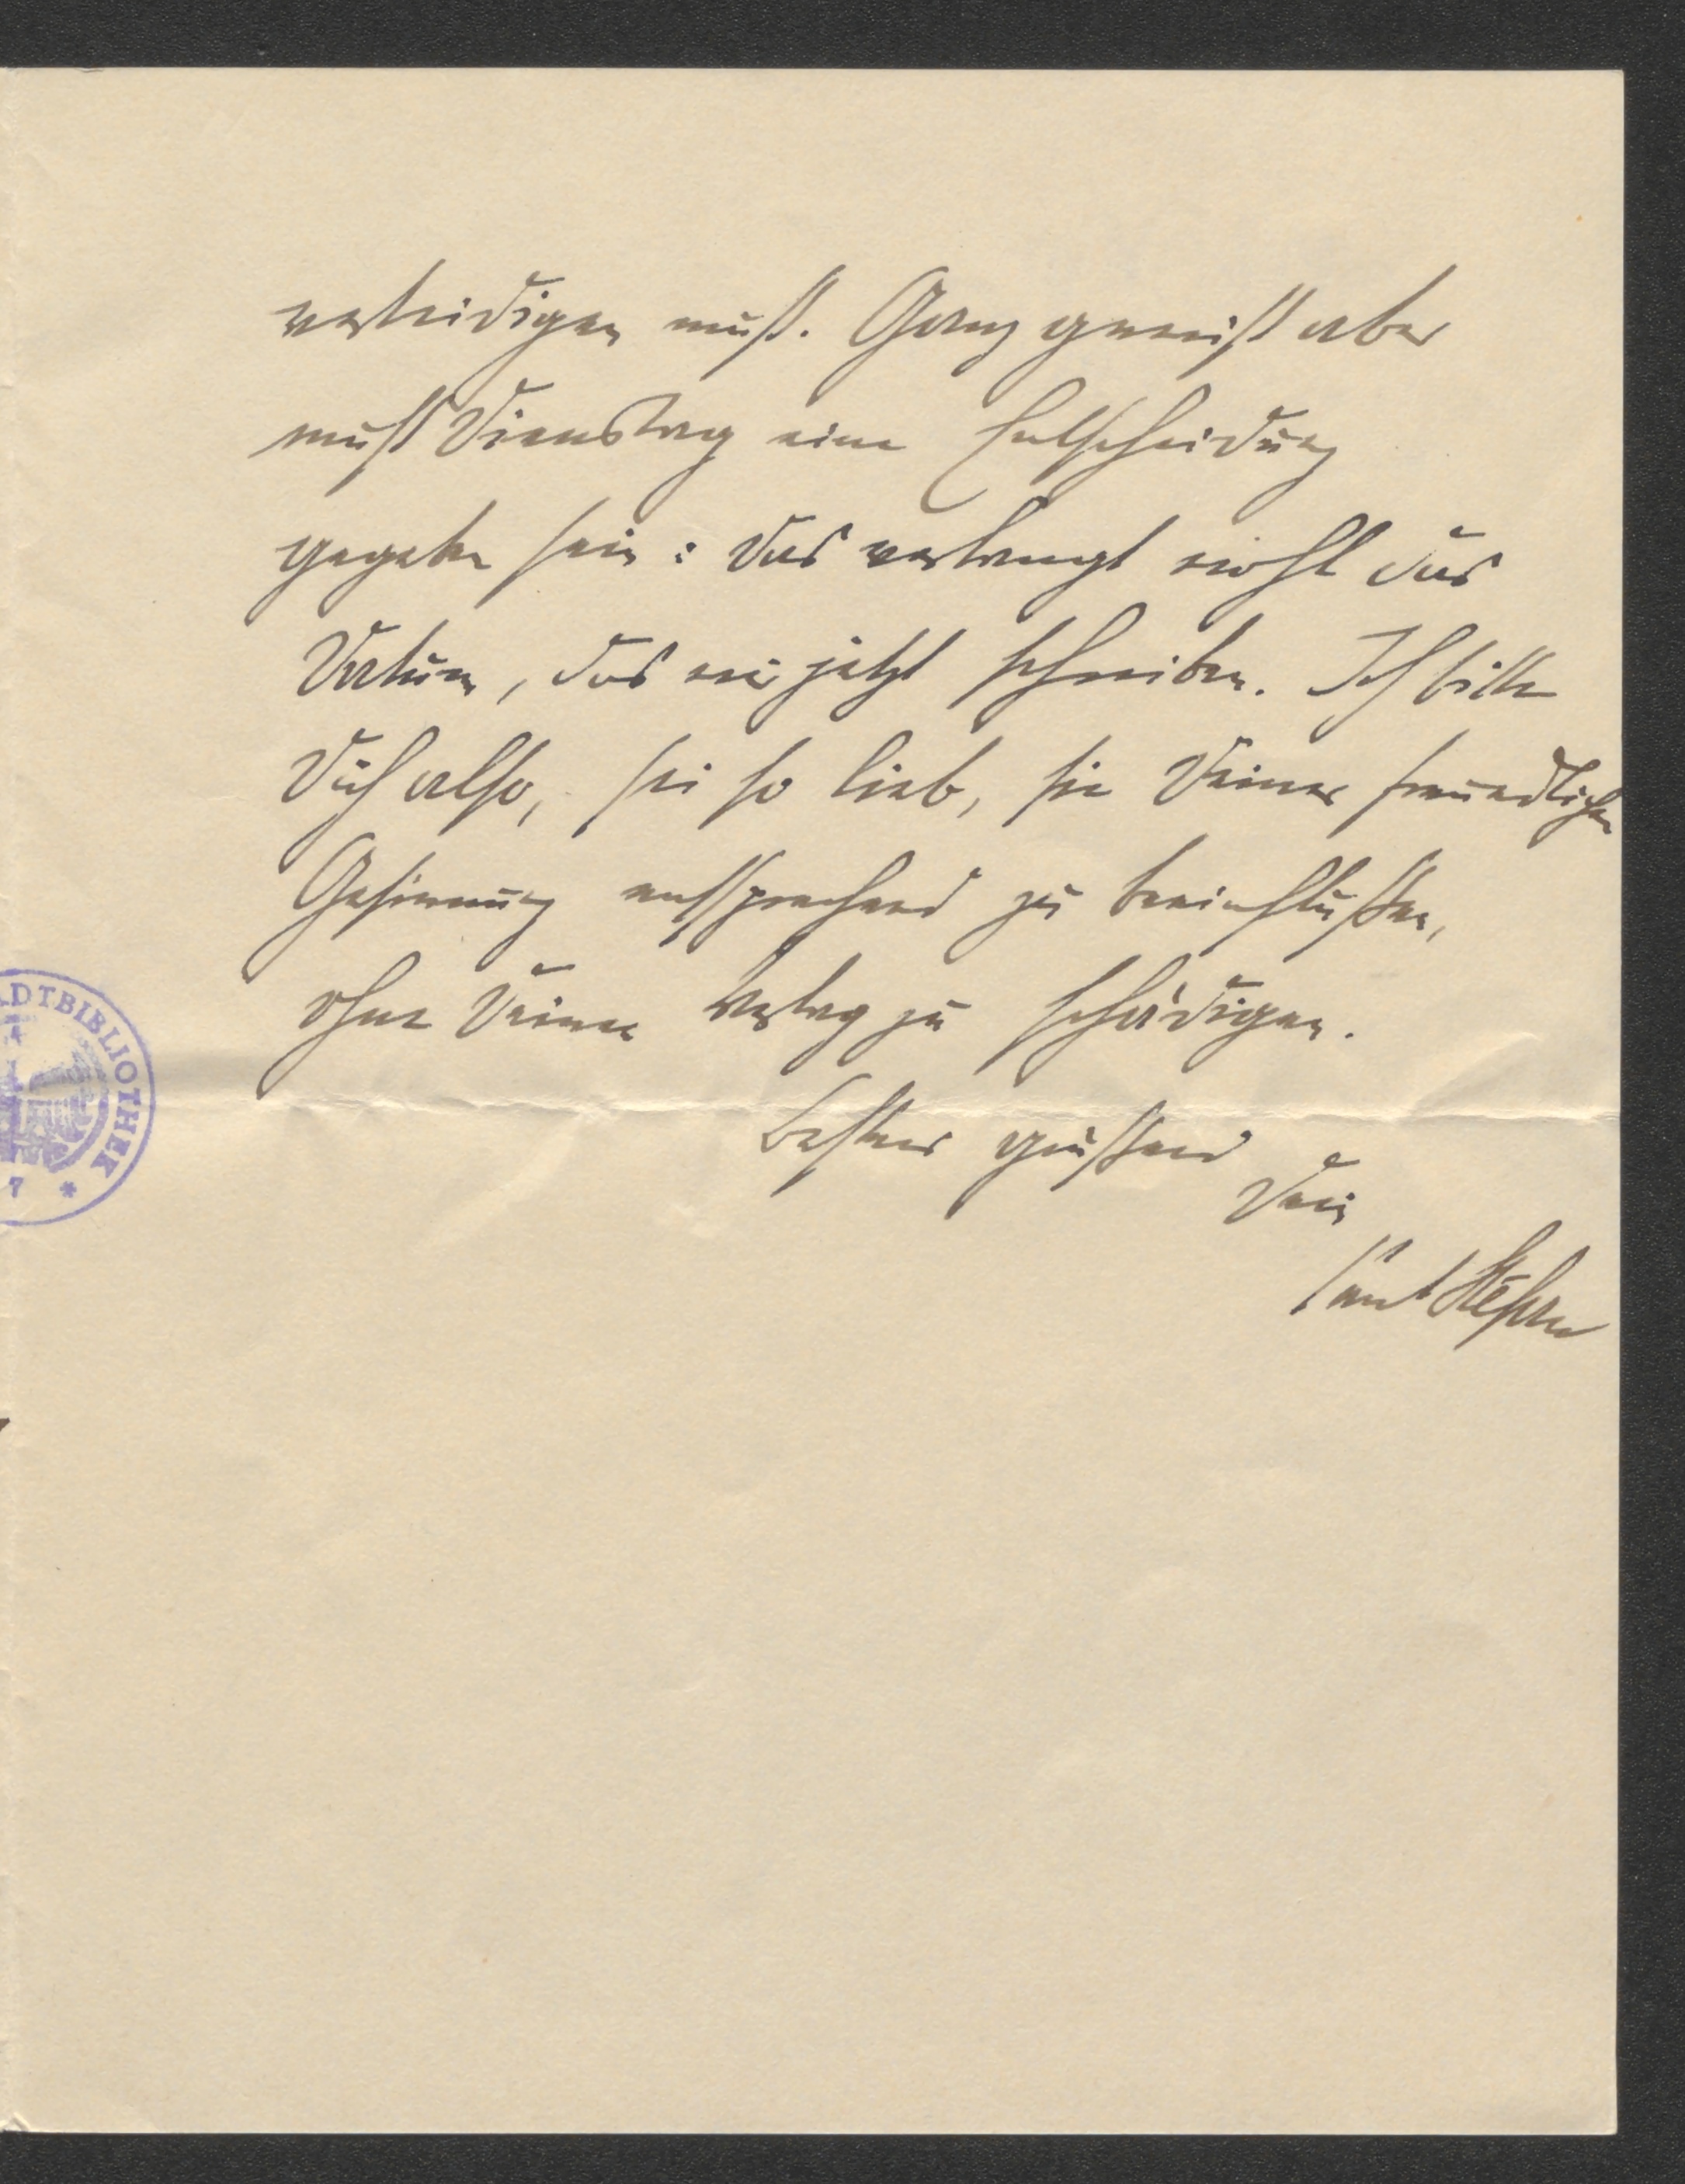 verteidigen muß. Ganz gewiß aber
muß Dienstag eine Entscheidung
gegeben sein: das verlangt nicht das
Datum, das wir jetzt schreiben. Ich bitte
Dich also, sei so lieb, sie Deiner freundlichen
Gesinnung entsprechend zu beeinflussen,
ohne Deinen Verlag zu schädigen.
Bestens grüßend
Dein
ADTBIBLIOTHEK
7 *